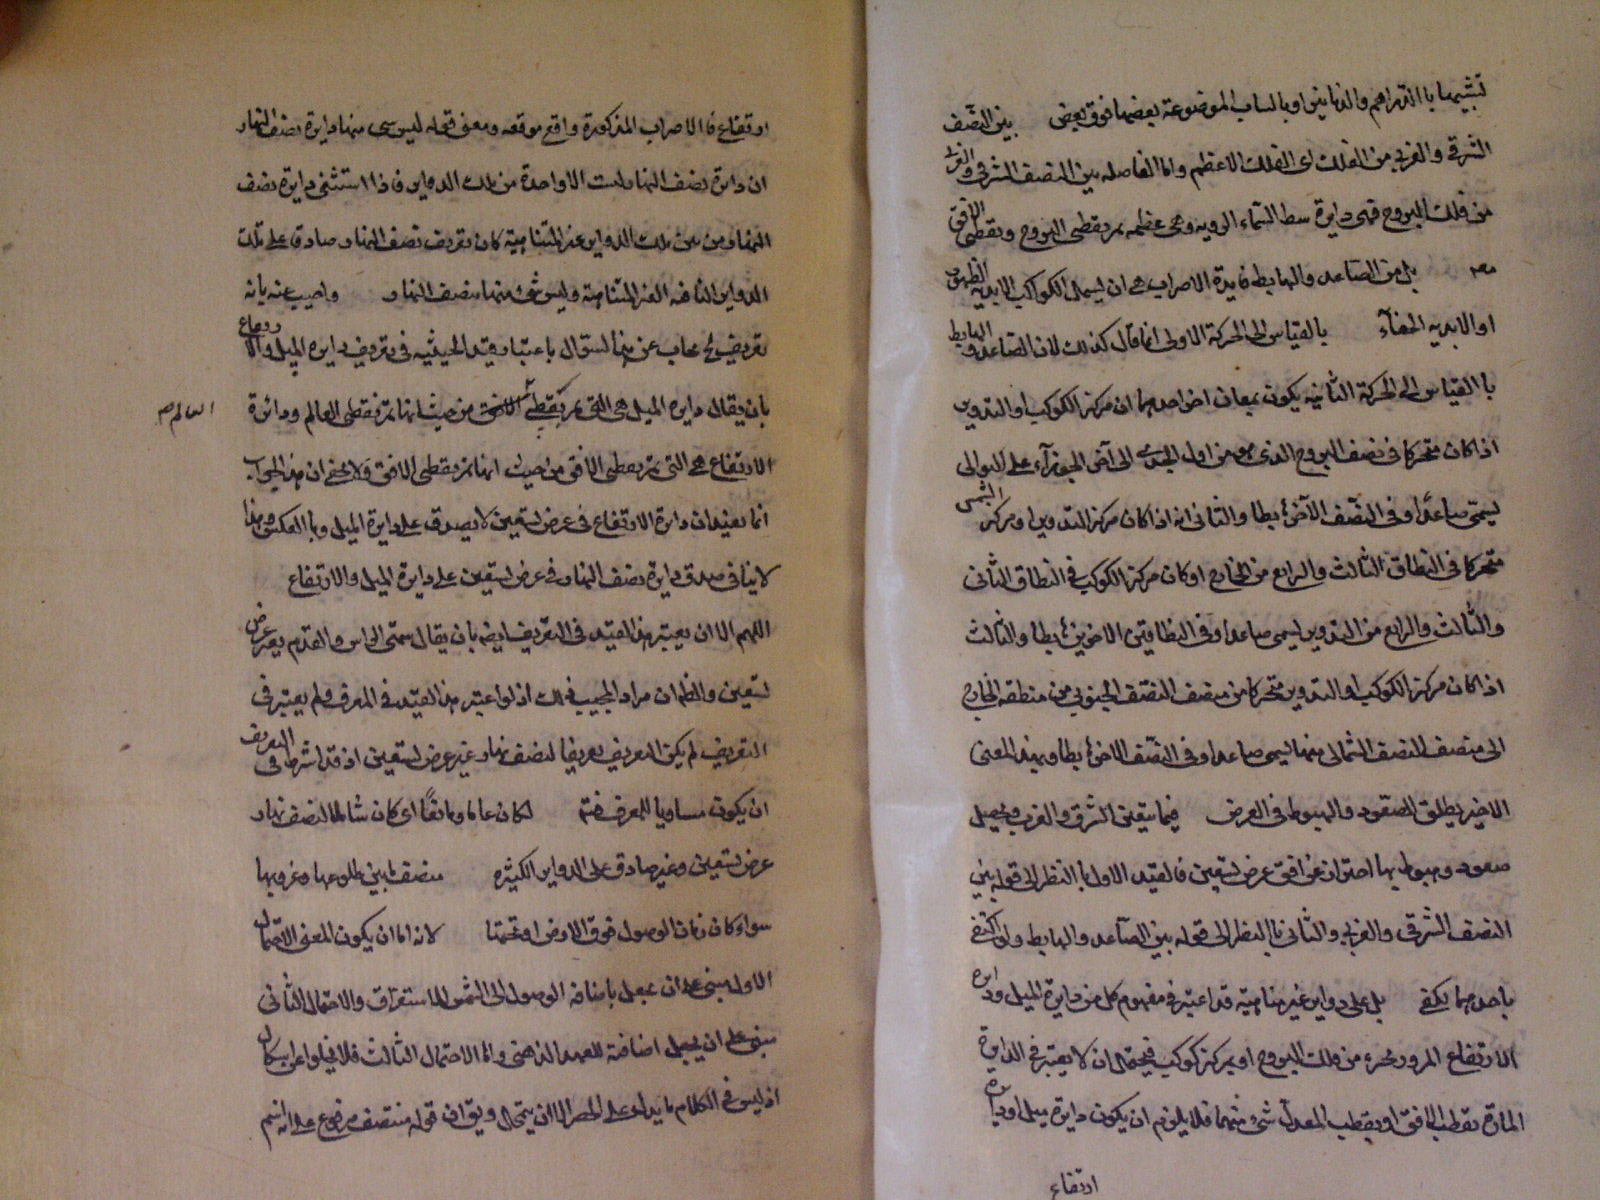 تشبيهها بالدراهم والدنانير او بالباب الموضوعة بعضها فوق بعض بين النصف
الشرقي والغربي من الفلك اى الفلك الاعظم واما الفاصلة بين النصف الشرقي والغربى
من فلك البروج فهى دايرة وسط السماء الرويه وهى عظيمه تمر بقطبى البروج وبقطبى الافق
معه بل من الصاعد والهابط فايدة الاضراب هى ان يشمل الكواكب الابدية الظهور
او الابديه الخفآء بالقياس الى الحركة الاولى انما قال كذلك لان الصاعد والهابط
باالقياس الى الحركة الثانيه يكون بمعان اخر احدها ان مركز الكوكب او التدوير
اذا كان متحركا فى نصف البروج الذى هو من اول الجدى الى آخر الجوزآء على التوالى
يسمى صاعدا وفى النصف الآخر هابطا والثانى انه اذا كان مركز التدوير او مركز الشمس
متحركا فى النطاق الثالث والرابع من الخارج او كان مركز الكوكب فى النطاق الثانى
والثالث والرابع من التدوير يسمى صاعدا وفى النطاقين الاخرين هابطا والثالث
اذا كان مركز الكوكب او التدوير متحركا من منتصف النصف الجنوبى من منطقه الخارج
الى منتصف النصف الشمالى منها يسمى صاعدا وفى النصف الاخر هابطا وبهذا المعنى
الاخير يطلق الصعود والهبوط فى العرض فيما يتعين الشرق والغرب ويحصل
صعود وهبوط بها احتراز عن افق عرض تسعين فالقيد الاول بالنظر الى قوله بين
النصف الشرقى والغربى والثانى باالنظر الى قوله بين الصآعد والهابط ولو اكتفى
باحدهما يكفى بل على دواير غير متناهية قد اعتبر فى مفهوم كل من دايرة الميل ودايرة
الارتفاع المرور بجزء من فلك البروج او بمركز كوكب فيحتمل ان لا يعتبر فى الدايرة
المارة بقطب الافق او بقطب المعدل شئ منهما فلا يلزم ان يكون دايرة ميل او دايرة
ارتفاع
ارتفاع فالاضراب المذكورة واقع موقعه ومعنى قوله ليس شئ منها دايرة نصف النهار
ان دايرة نصف النهار ليست الا واحدة من تلك الدواير فاذا استثنى دايرة نصف
النهار من بين تلك الدواير الغير المتناهية كان تعريف نصف النهار صادقا على تلك
الدواير الباقيه الغير المتناهية وليس شئ منها بنصف النهار واجيب عنه بانه
تعريف يجاب عن هذا السؤال باعتبار قيد الحيثيه فى تعريف دايره الميل والارتفاع
بان يقال دايره الميل هى التى تمر بقطبى من حيث انها تمر بقطبى العالم ودائرة
العالم صح
الارتفاع هى التى تمر بقطبى الافق من حيث انها تمر بقطبى الافق ولا يخفى ان هذا الجواب
انما يفيد ان دايرة الارتفاع فى عرض تسعين لا يصدق على دايرة الميل وبا العكس وهذا
لا ينافى صدق دايرة نصف النهار فى عرض تسعين على دايرة الميل والارتفاع
اللهم الا ان يعتبر هذا القيد فى التعريف ايضا بان يقال سمتى الراس والقدم بغير عرض
تسعين والظ ان مراد المجيب ذلك اذ لو اعتبر هذا القيد فى المعرف ولم يعتبر فى
التعريف لم يكن التعريف تعريفا لنصف نهار غير عرض تسعين اذ قد اشترط فى التعريف
ان يكون مساويا للمعرف فتم لكان عاما ومانعا اى كان شاملا لنصف نهار
عرض تسعين وغير صادق على الدواير الكثيره منتصف ما بين طلوعها وغروبها
سواء كان زمان الوصول فوق الارض او تحتها لانه اما ان يكون المعنى الاحتمال
الاول مبنى على ان يجعل باضافه الوصول الى الشمس للاستغراق والاحتمال الثانى
مبنى على ان يجعل اضافته للعهد الذهنى واما الاحتمال الثالث فلا يخلوا عن اشكال
اذ ليس فى الكلام ما يدل على الحصر الا ان يتمحل ويق ان قوله منتصف مرفوع على انه اسم